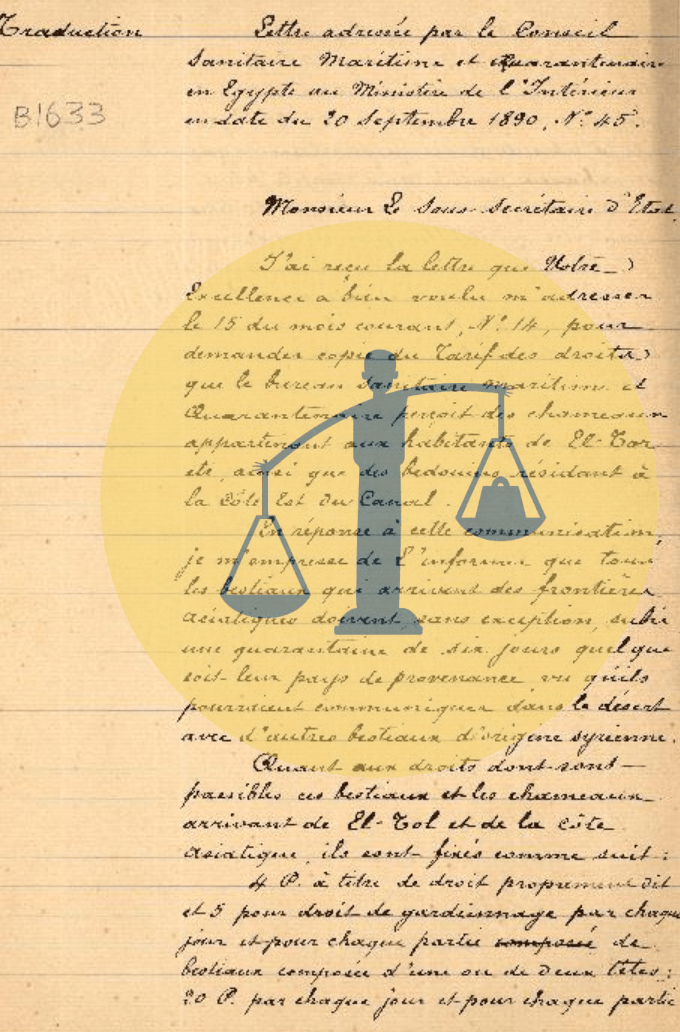 Traduction
Lettre adressée par le Conseil
Sanitaire Maritime et Quarantenaire
en Egypte au Ministère de l'Intérieur
en date du 20 Septembre 1890, N° 45.
B1633
Monsieur Le Sous-Secrétaire d'Etat,
J'ai reçu la lettre que Votre
Excellence a bien voulu m'adresser
le 15 du mois courant, N° 14, pour
demander copie du Tarif des droits
que le bureau Sanitaire maritime et
Quarantenaire perçoit des chameaux
appartenant aux habitants de El-Tor
etc, ainsi que des bedouins résidant à
la Côte Est du Canal.
En réponse à cette communication,
je m'empresse de L'informer que tous
les bestiaux qui arrivent des frontières
asiatiques doivent, sans exception, subir
une quarantaine de six jours quel que
soit leur pays de provenance vu qu'ils
pourraient communiquer dans le désert
avec d'autres bestiaux d'origine syrienne.
Quant aux droits dont sont
passibles ces bestiaux et les chameaux
arrivant de El-Tol et de la côte
asiatique, ils sont fixés comme suit :
4 P. à titre de droit proprement dit
et 5 pour droit de gardiennage par chaque
jour et pour chaque partie composée de
bestiaux composée d'une ou de deux têtes ;
20 P. par chaque jour et pour chaque partie